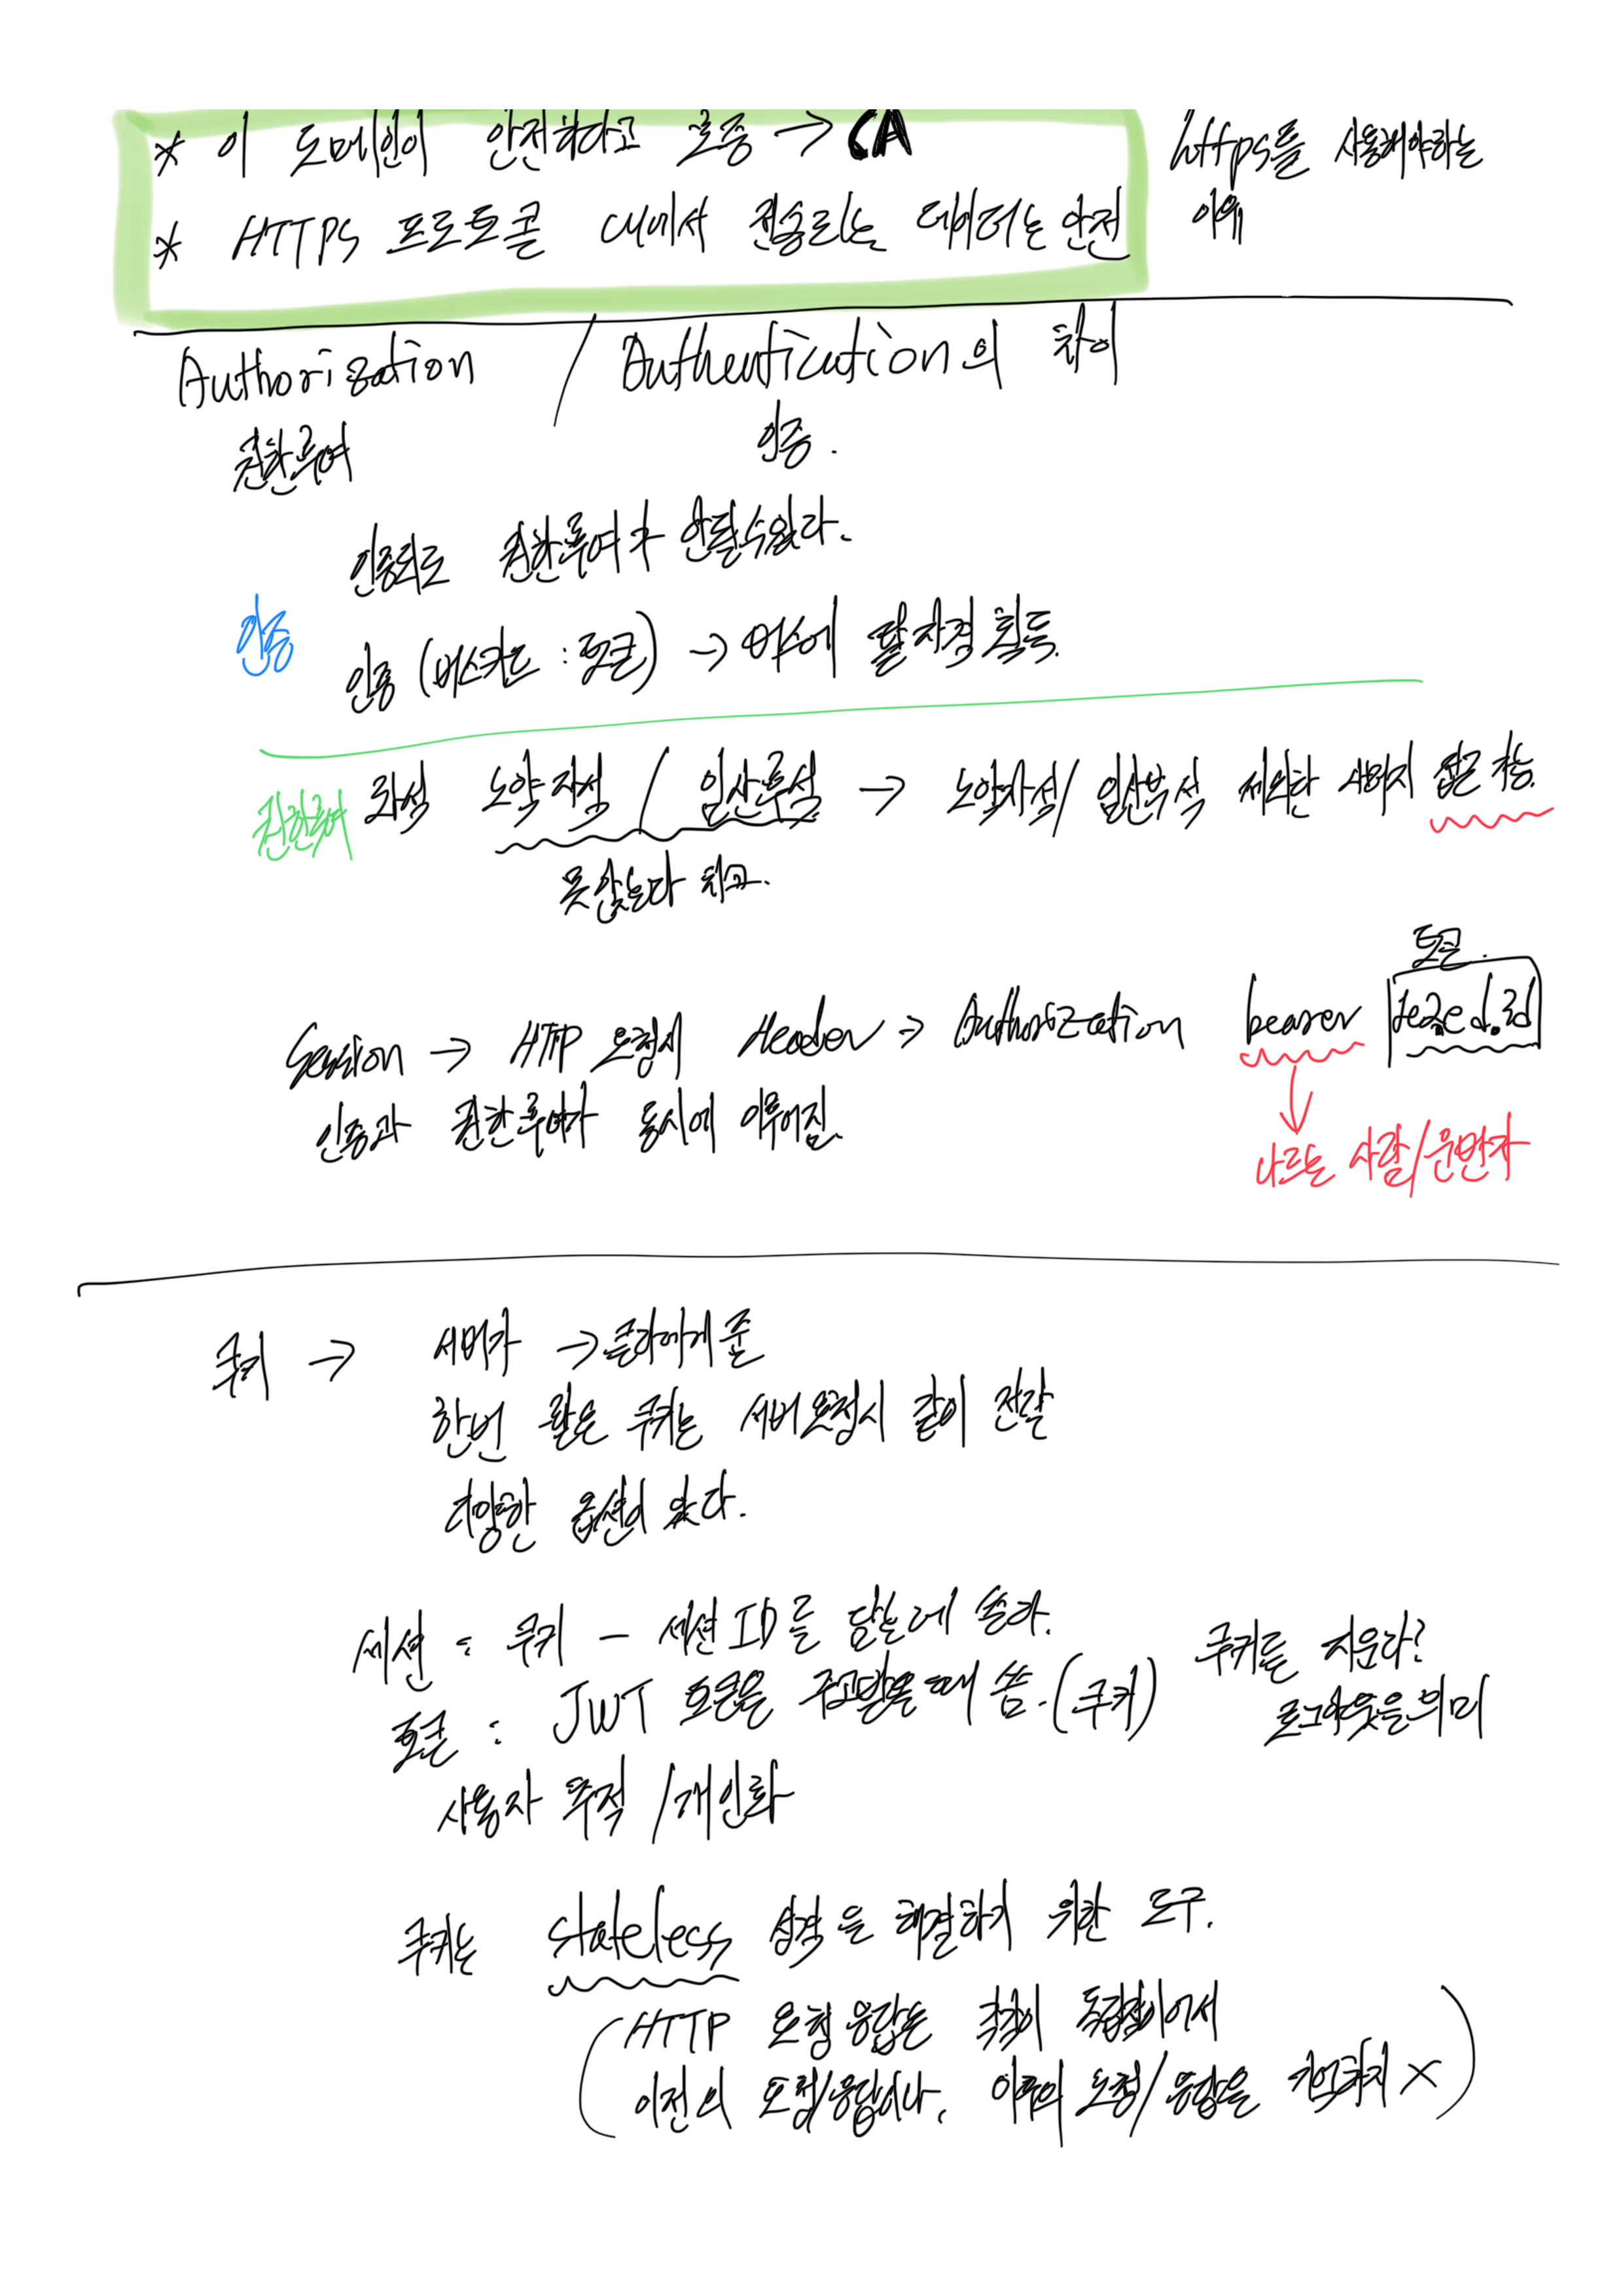 * 이 도메인이 안전하다고 보증 → CA
* HTTPS 프로토콜 내에서 전송되는 데이터는 안전
https를 사용해야하는
이유
Authorization / Authentication의 차이
권한부여 인증.
인증되도 권한부여가 안될수있다.
인증
인증 (버스카드 : 토큰) → 버스에 탈 자격 획득.
권한부여
좌석 노약자석 / 임산부석 → 노약자석/임산부석 제외한 나머지 접근 가능.
못 앉는다 치고.
토큰.
Session → HTTP 요청시 Header → Authorization bearer
인증과 권한부여가 동시에 이루어짐
나르는 사람/운반자
쿠키 → 서버가 → 클라에게 줌
한번 받은 쿠키는 서버요청시 같이 전달
다양한 옵션이 있다.
세션 : 쿠키 - 세션 ID를 담는데 쓴다.
토큰 : JWT 토큰을 주고받을때 씀. (쿠키)
쿠키를 지운다?
로그아웃을 의미
사용자 추적 / 개인화
쿠키는 stateless 성격을 해결하기 위한 도구.
(HTTP 요청 응답은 각각이 독립적이어서
이전의 요청/응답이나, 이후의 요청/응답을 기억하지 X)